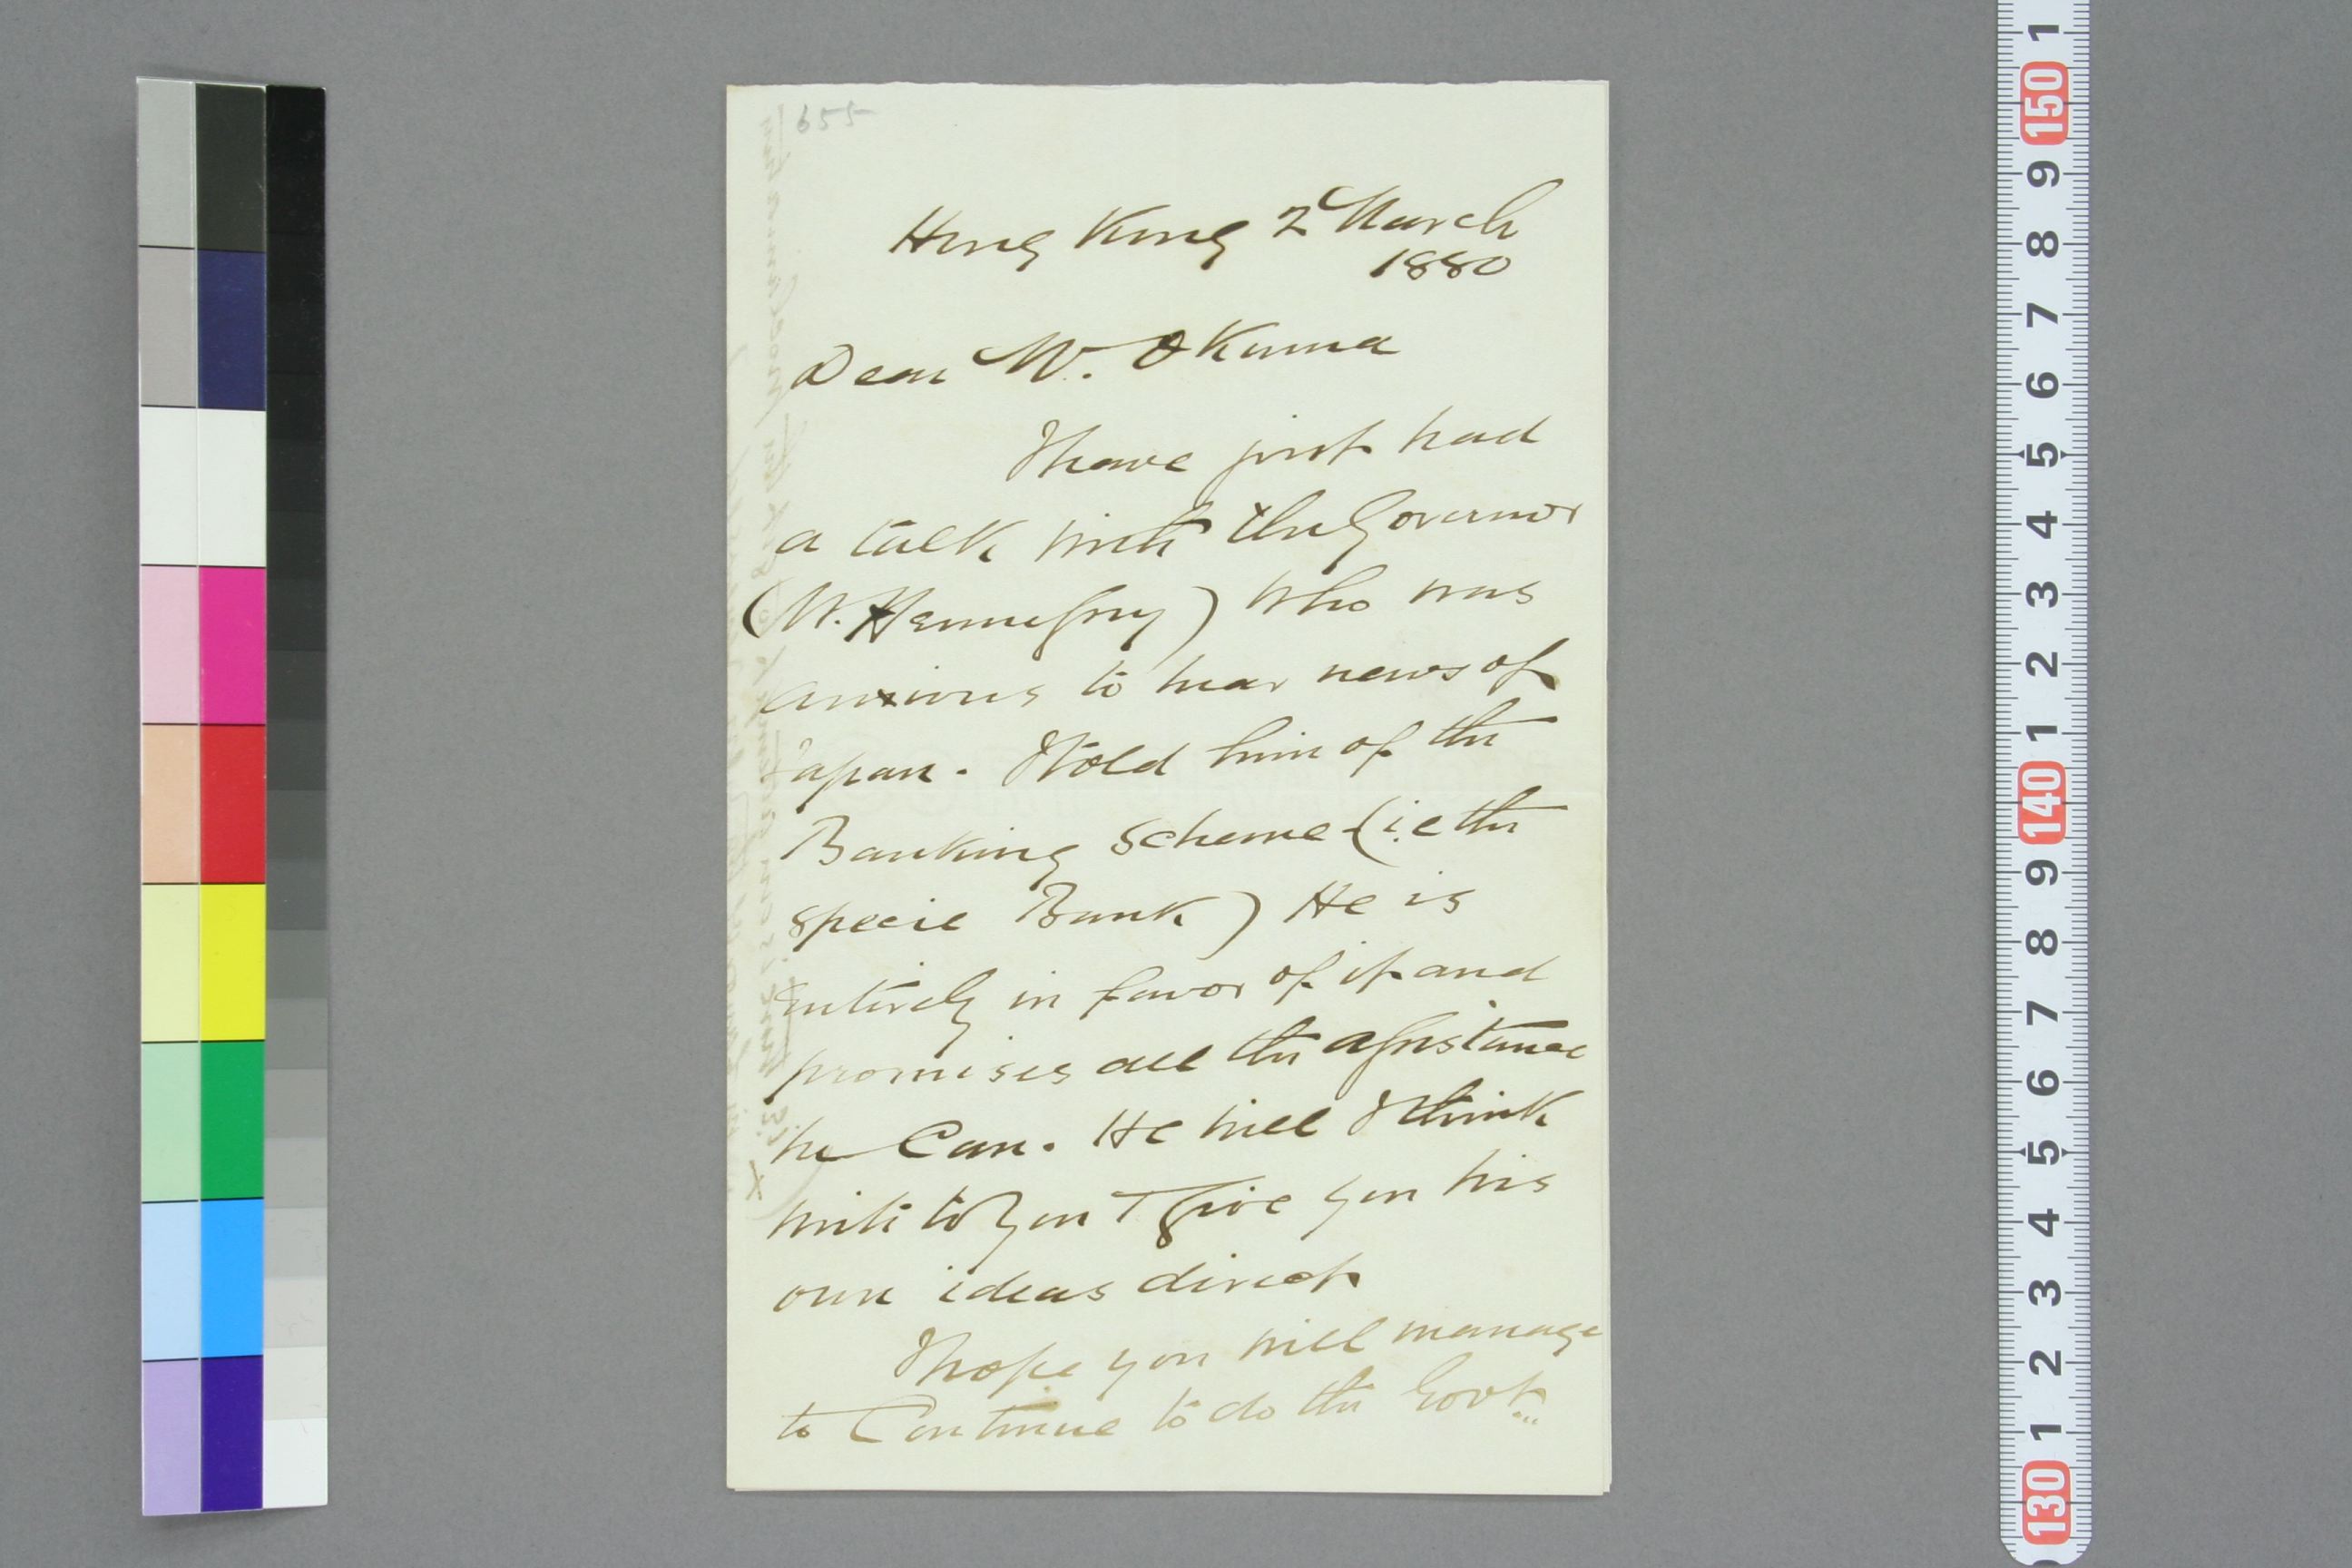 655
Hong Kong 2 March
1880
Dear Mr. Okuma
I have just had
a talk with the Governor
(Mr. Hennessy) who was
anxious to hear news of
Japan. I told him of the
Banking Scheme (i.e the
specie Bank) He is
entirely in favor of it and
promises all the assistance
he Can. He will I think
write to you & give you his
own ideas direct
I hope you will manage
to Continue to do the Govt
1
150
9
8
7
6
5
4
3
2
1
140
9
8
7
6
5
4
3
2
1
130